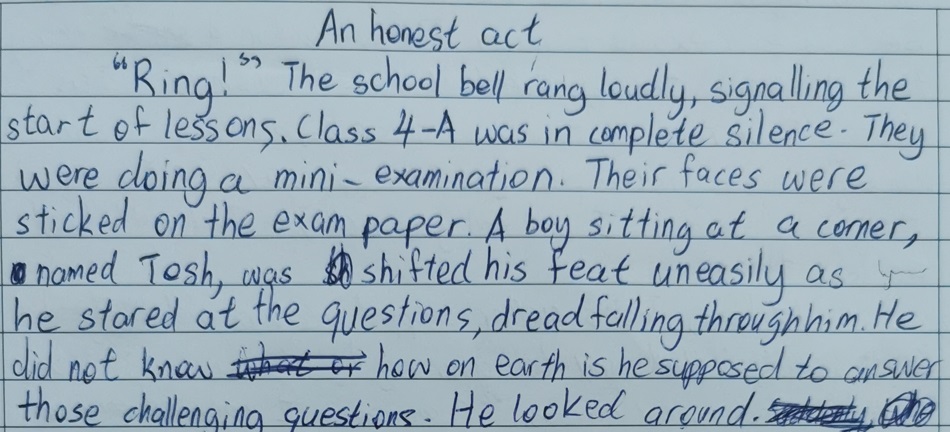 An honest act
"Ring!" The school bell rang loudly, signalling the
start of lessons. Class 4-A was in complete silence. They
were doing a mini-examination. Their faces were
sticked on the exam paper. A boy sitting at a corner,
named Tosh, was shifted his feat uneasily as
he stared at the questions, dread falling through him. He
did not know what or how on earth is he supposed to answer
those challenging questions. He looked around.